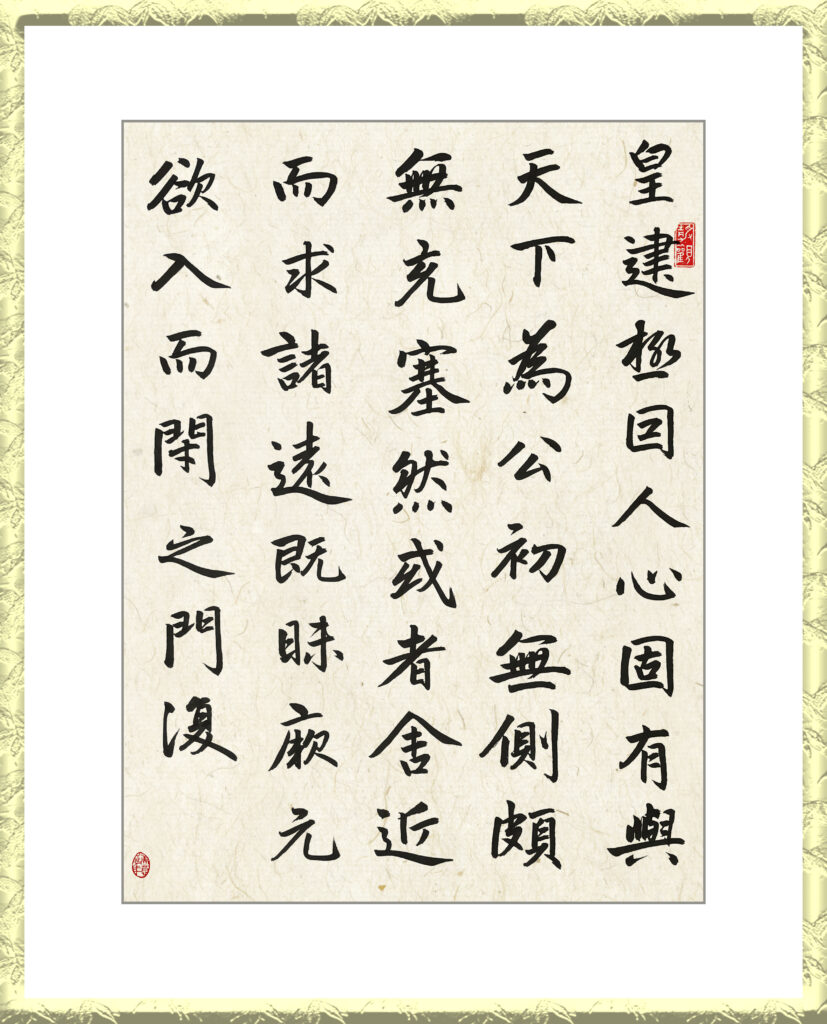 皇建極囙人心固有與
天下為公初無側頗
無充塞然或者舍近
而求諸遠既昧厥元
欲入而閉之門復